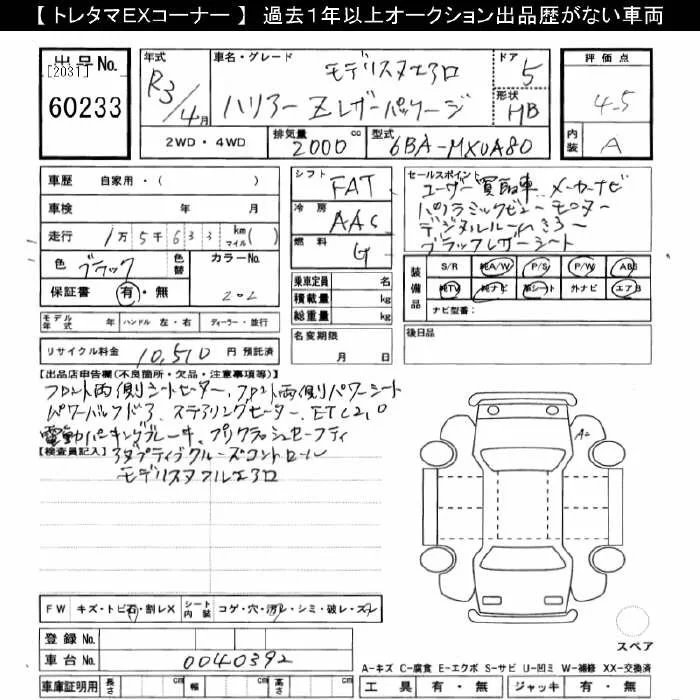 【 トレタマEXコーナー 】 過去1年以上オークション出品歴がない車両
出品No.
[2031]
60233
年式
R3/4月
車名・グレード
モデリスタエアロ
ハリアー Zレザーパッケージ
ドア
5
形状
HB
2WD・4WD
排気量
2000
cc
型式
6BA-MXUA80
評価点
4.5
内装
A
車歴 自家用・( )
車検 年 月
走行 1万5千633 km マイル( )
色 ブラック
色替
カラーNo.
202
保証書 有・無
モデル年式 年 ハンドル 左・右 ディーラー・並行
リサイクル料金 10,510 円 預託済
シフト FAT
冷房 AAC
燃料 G
乗車定員 名
積載量 kg
総重量 kg
名変期限
月 日
セールスポイント
ユーザー買取車 メーカーナビ
パノラミックビューモニター
デジタルルームミラー
ブラックレザーシート
装備品
S/R 純A/W P/S P/W ABS
純TV 純ナビ 革シート 外ナビ エアB
ナビ型番:
後日品
【出品店申告欄(不良箇所・欠品・注意事項等)】
フロント両側シートヒーター、フロント両側パワーシート
パワーバックドア、ステアリングヒーター、ETC2.0
電動パーキングブレーキ、プリクラッシュセーフティ
【検査員記入】
アダプティブクルーズコントロール
モデリスタフルエアロ
A2
FW キズ・トビ石・割レX
シート内装 コゲ・穴・汚レ・シミ・破レ・スレ
登録No.
車台No. 0040392
車庫証明用 長さ cm 幅 cm 高さ cm
スペア
A-キズ C-腐食 E-エクボ S-サビ U-凹ミ W-補修 XX-交換済
工具 有・無 ジャッキ 有・無